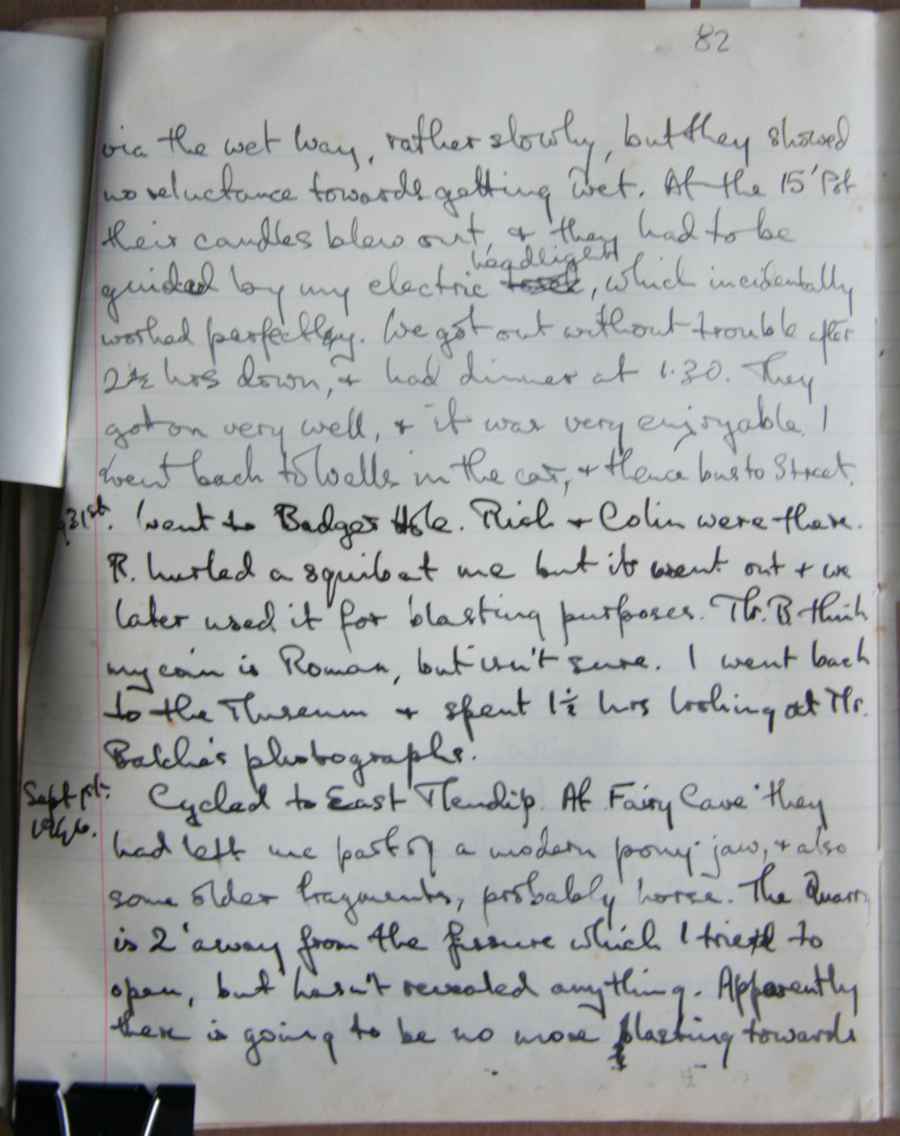 82
via the wet way, rather slowly, but they showed
no reluctance towards getting wet. At the 15' Pot
their candles blew out, & they had to be
headlight
guided by my electric torch, which incidentally
worked perfectly. We got out without trouble after
2½ hrs down, & had dinner at 1.30. They
got on very well, & it was very enjoyable. I
went back to Wells in the car, & thence bus to Street.
31st. Went to Badger Hole. Rich & Colin were there.
R. hurled a squib at me but it went out & we
later used it for blasting purposes. Mr. B. think
my coin is Roman, but isn't sure. I went back
to the Museum & spent 1½ hrs looking at Mr.
Balch's photographs.
Sept 1st. Cycled to East Mendip. At Fairy Cave they
1946. had left me part of a modern pony jaw, & also
some older fragments, probably horse. The Quarry
is 2' away from the fissure which I tried to
open, but hasn't revealed anything. Apparently
there is going to be no more blasting towards